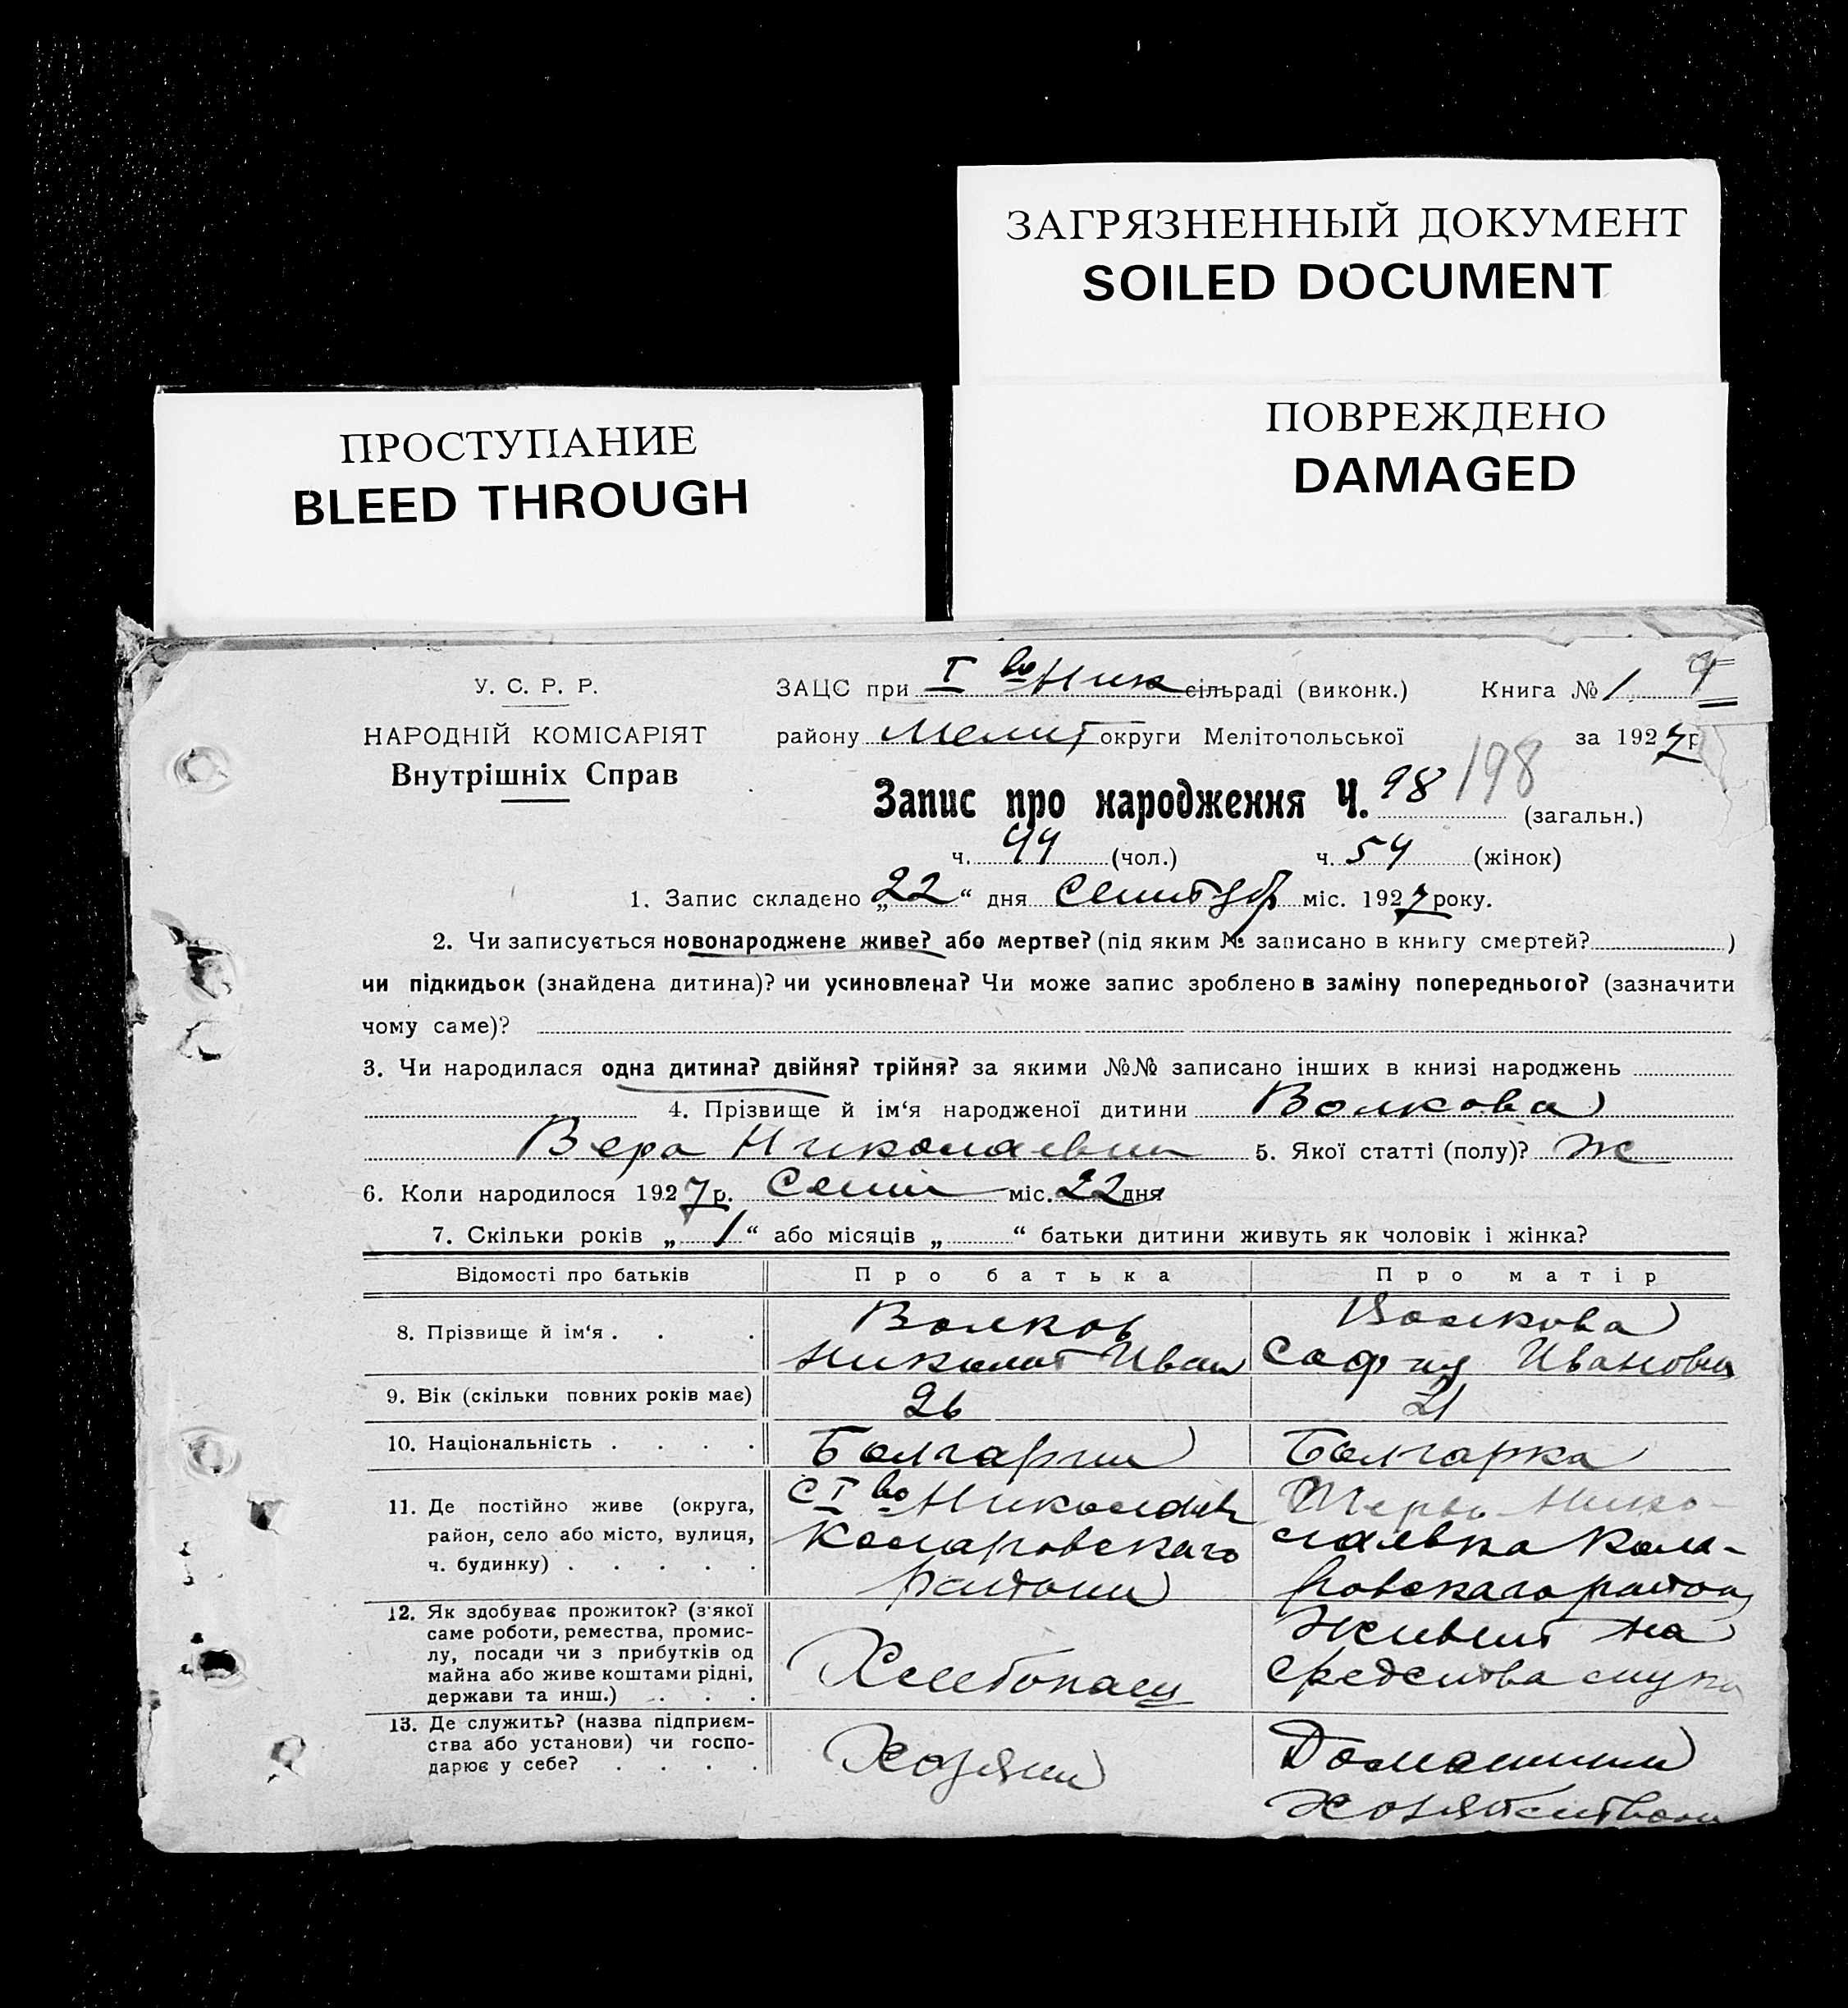 ЗАГРЯЗНЕННЫЙ ДОКУМЕНТ
SOILED DOCUMENT
ПРОСТУПАНИЕ
BLEED THROUGH
ПОВРЕЖДЕНО
DAMAGED
У. С. Р. Р.
НАРОДНІЙ КОМІСАРІЯТ
Внутрішніх Справ
ЗАЦС при I во Ник сільраді (виконк.) Книга № 1
району Мелит округи Мелітопольської за 1927 р
Запис про народження Ч. 98 198 (загальн.)
ч. 44 (чол.) ч. 54 (жінок)
1. Запис складено „22“ дня міс. 1927 року.
2. Чи записується новонароджене живе? або мертве? (під яким № записано в книгу смертей? )
чи підкидьок (знайдена дитина)? чи усиновлена? Чи може запис зроблено в заміну попереднього? (зазначити
чому саме)?
3. Чи народилася одна дитина? двійня? трійня? за якими №№ записано інших в книзі народжень
4. Прізвище й ім‘я народженої дитини Волкова
Вера Николаевна 5. Якої статті (полу)? Ж
6. Коли народилося 1927 р. міс. 22 дня
7. Скільки років „ 1 “ або місяців „ “ батьки дитини живуть як чоловік і жінка?
Відомості про батьків Про батька Про матір
8. Прізвище й ім‘я . . . Волков Волкова
Николай Иван София Ивановна
9. Вік (скільки повних років має) 26 21
10. Національність . . . . Болгарин Болгарка
11. Де постійно живе (округа, район, село або місто, вулиця, ч. будинку) . . . . .
с I во Николаев
Комаровскаго
района
Перво Нико-
лаевка Кома-
ровскаго района
12. Як здобуває прожиток? (з‘якої саме роботи, ремества, промис-
лу, посади чи з прибутків од
майна або живе коштами рідні,
держави та инш.) . . .
Хлебопашец
Живет на
средства мужа
13. Де служить? (назва підприєм-
ства або установи) чи госпо-
дарює у себе? . . . .
Хозяин
Домашним
хозяйством